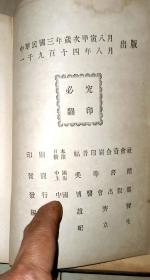 中華民國三年歲次甲寅八月
一千九百十四年八月 出版
必究
翻印
印刷 日本橫濱 福音印刷合資會社
發賣 中國上海 美華書館
發行 中國博醫會出版部